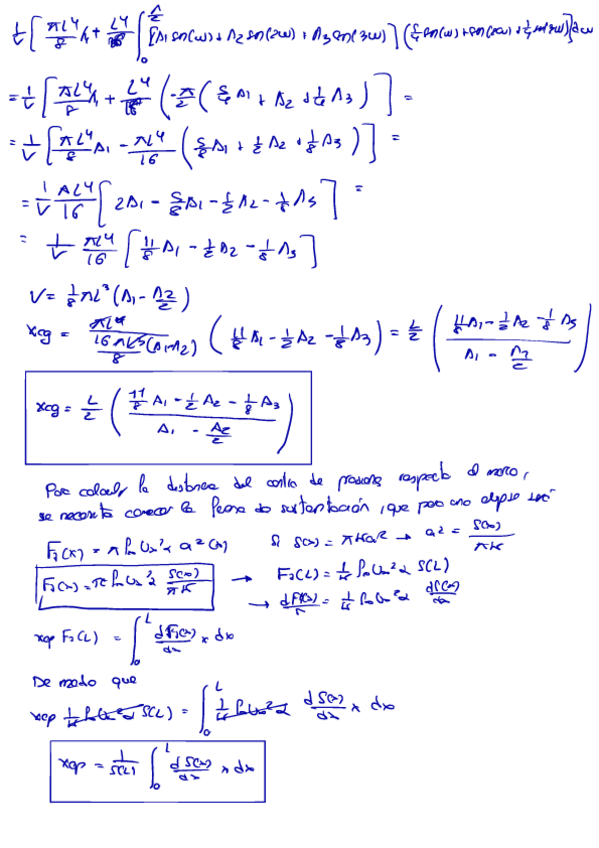 1/V [ πL⁴/8 A₁ + L⁴/16 ∫₀^π [A₁ sen(ω) + A₂ sen(2ω) + A₃ sen(3ω)] (5/4 sen(ω) + sen(2ω) + 1/4 sen(3ω)) ] dω
= 1/V [ πL⁴/8 A₁ + L⁴/16 ( -π/2 ( 5/4 A₁ + A₂ + 1/4 A₃ ) ] =
= 1/V [ πL⁴/8 A₁ - πL⁴/16 ( 5/8 A₁ + 1/2 A₂ + 1/8 A₃ ) ] =
= 1/V πL⁴/16 [ 2A₁ - 5/8 A₁ - 1/2 A₂ - 1/8 A₃ ] =
= 1/V πL⁴/16 [ 11/8 A₁ - 1/2 A₂ - 1/8 A₃ ]
V = 1/8 πL³ (A₁ - A₂/2)
xcg = πL⁴ / (16 πL³/8 (A₁-A₂)) ( 11/8 A₁ - 1/2 A₂ - 1/8 A₃ ) = L/2 ( (11/8 A₁ - 1/2 A₂ - 1/8 A₃) / (A₁ - A₂/2) )
xcg = L/2 ( (11/8 A₁ - 1/2 A₂ - 1/8 A₃) / (A₁ - A₂/2) )
Para calcular la distancia del centro de presiones respecto al morro,
se necesita conocer la fuerza de sustentación, que para una elipse será
F₃(x) = π ρ∞ U∞² α a²(x) Si S(x) = πKa² → a² = S(x)/πK
F₃(x) = π ρ∞ U∞² α S(x)/πK → F₃(L) = 1/K ρ∞ U∞² α S(L)
→ dF(x)/dx = 1/K ρ∞ U∞² α dS(x)/dx
xcp F₃(L) = ∫₀^L dF₃(x)/dx x dx
De modo que
xcp 1/K ρ∞ U∞² α S(L) = ∫₀^L 1/K ρ∞ U∞² α dS(x)/dx x dx
xcp = 1/S(L) ∫₀^L dS(x)/dx x dx